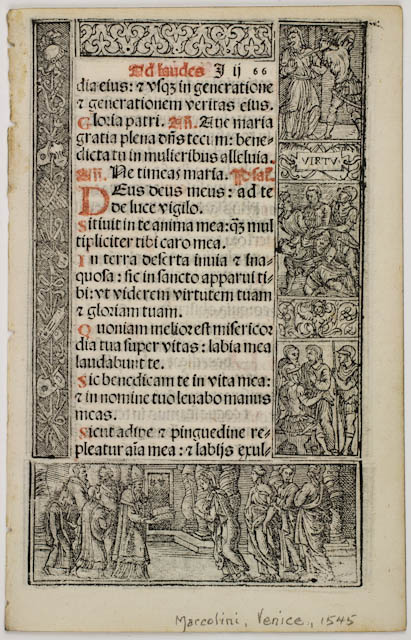 Ad laudes J ij 66
dia eius: ⁊ vsq; in generatione
⁊ generationem veritas eius.
Gloria patri. Añ. Aue maria
gratia plena dñs tecum: bene-
dicta tu in mulieribus alleluia.
Añ. Ne timeas maria. Psal.
DEus deus meus: ad te
de luce vigilo.
Sitiuit in te anima mea: q̃3 mul
tipliciter tibi caro mea.
In terra deserta inuia ⁊ ina-
quosa: sic in sancto apparui ti-
bi: vt viderem virtutem tuam
⁊ gloriam tuam.
Quoniam melior est misericor
dia tua super vitas: labia mea
laudabunt te.
Sic benedicam te in vita mea:
⁊ in nomine tuo leuabo manus
meas.
Sicut adipe ⁊ pinguedine re-
pleatur aĩa mea: ⁊ labijs exul-
VIRTV.
Marcolini, Venice, 1545